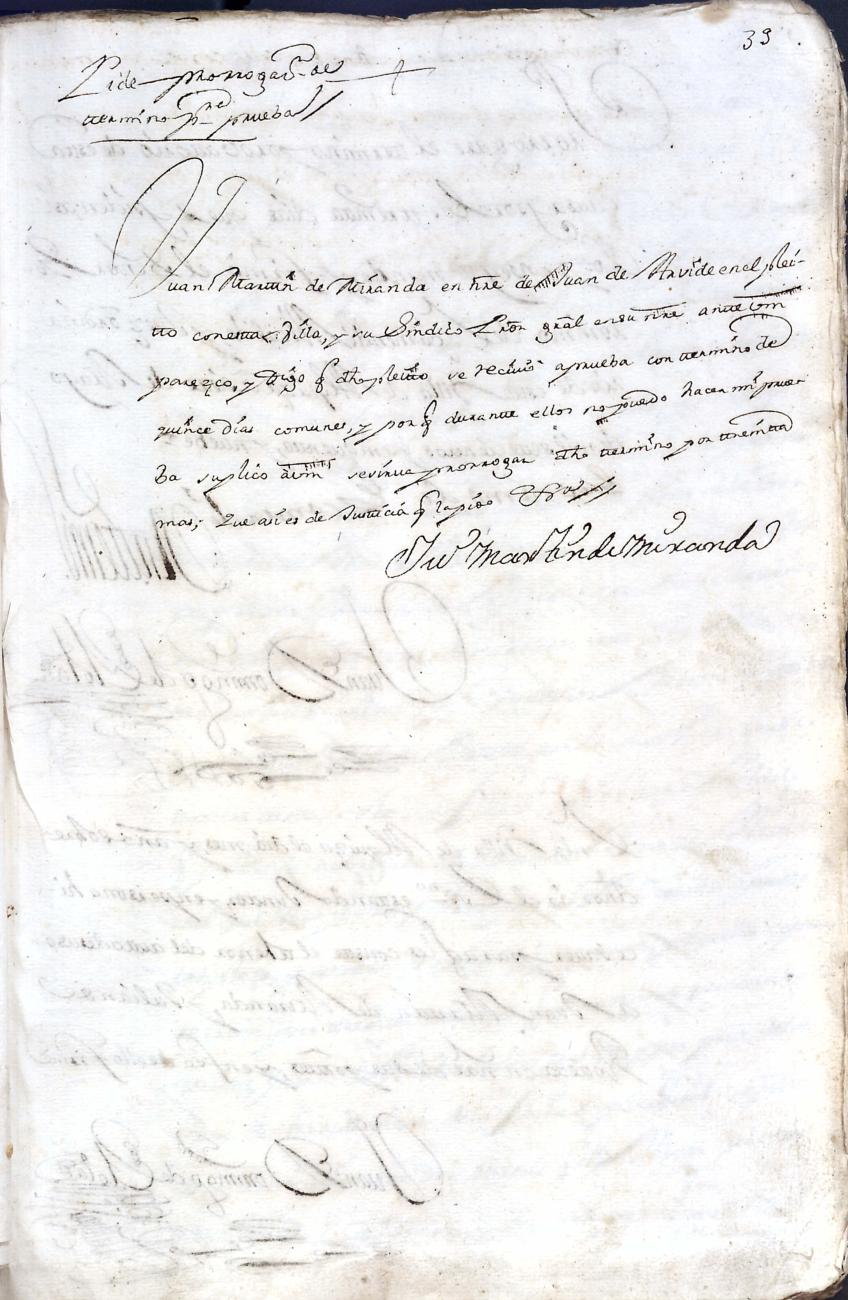 39
Pide prorrogaon. de
termino pra. prueba//
Juan Martin de Miranda en nre de Juan de Arvide en el plei-
tto con esta Villa, y su Sindico Pror gral en su nre ante Vm
parezco, y Digo q dho pleitto se recivio aprueba con termino de
quince dias comunes, y por q durante ellos no puedo hacer mi prue-
ba suplico avm se sirva prorrogar dho termino por treinta
mas; que asi es de Justicia q la pido &
Juo Martin de Miranda